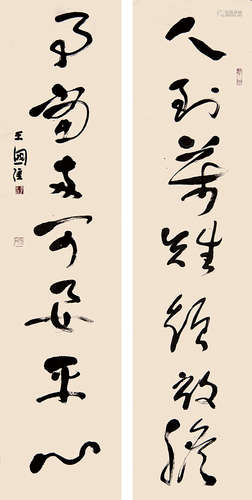 人到萬難須放膽
事當兩可要平心
王國